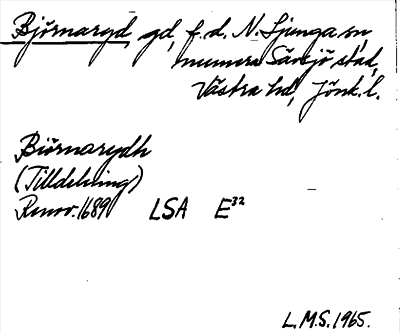 Björnaryd, gd, f.d. N. Ljunga sn,
numera Sävsjö stad,
Västra hd, Jönk. l.
Biörnarydh
(Tilldelning)
Renov. 1689 LSA E³²
L.M.S. 1965.